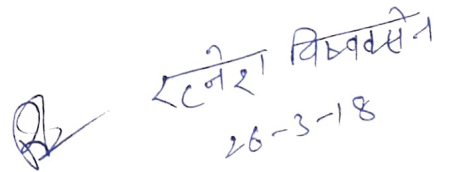 रत्नेश विष्वक्सेन
26-3-18